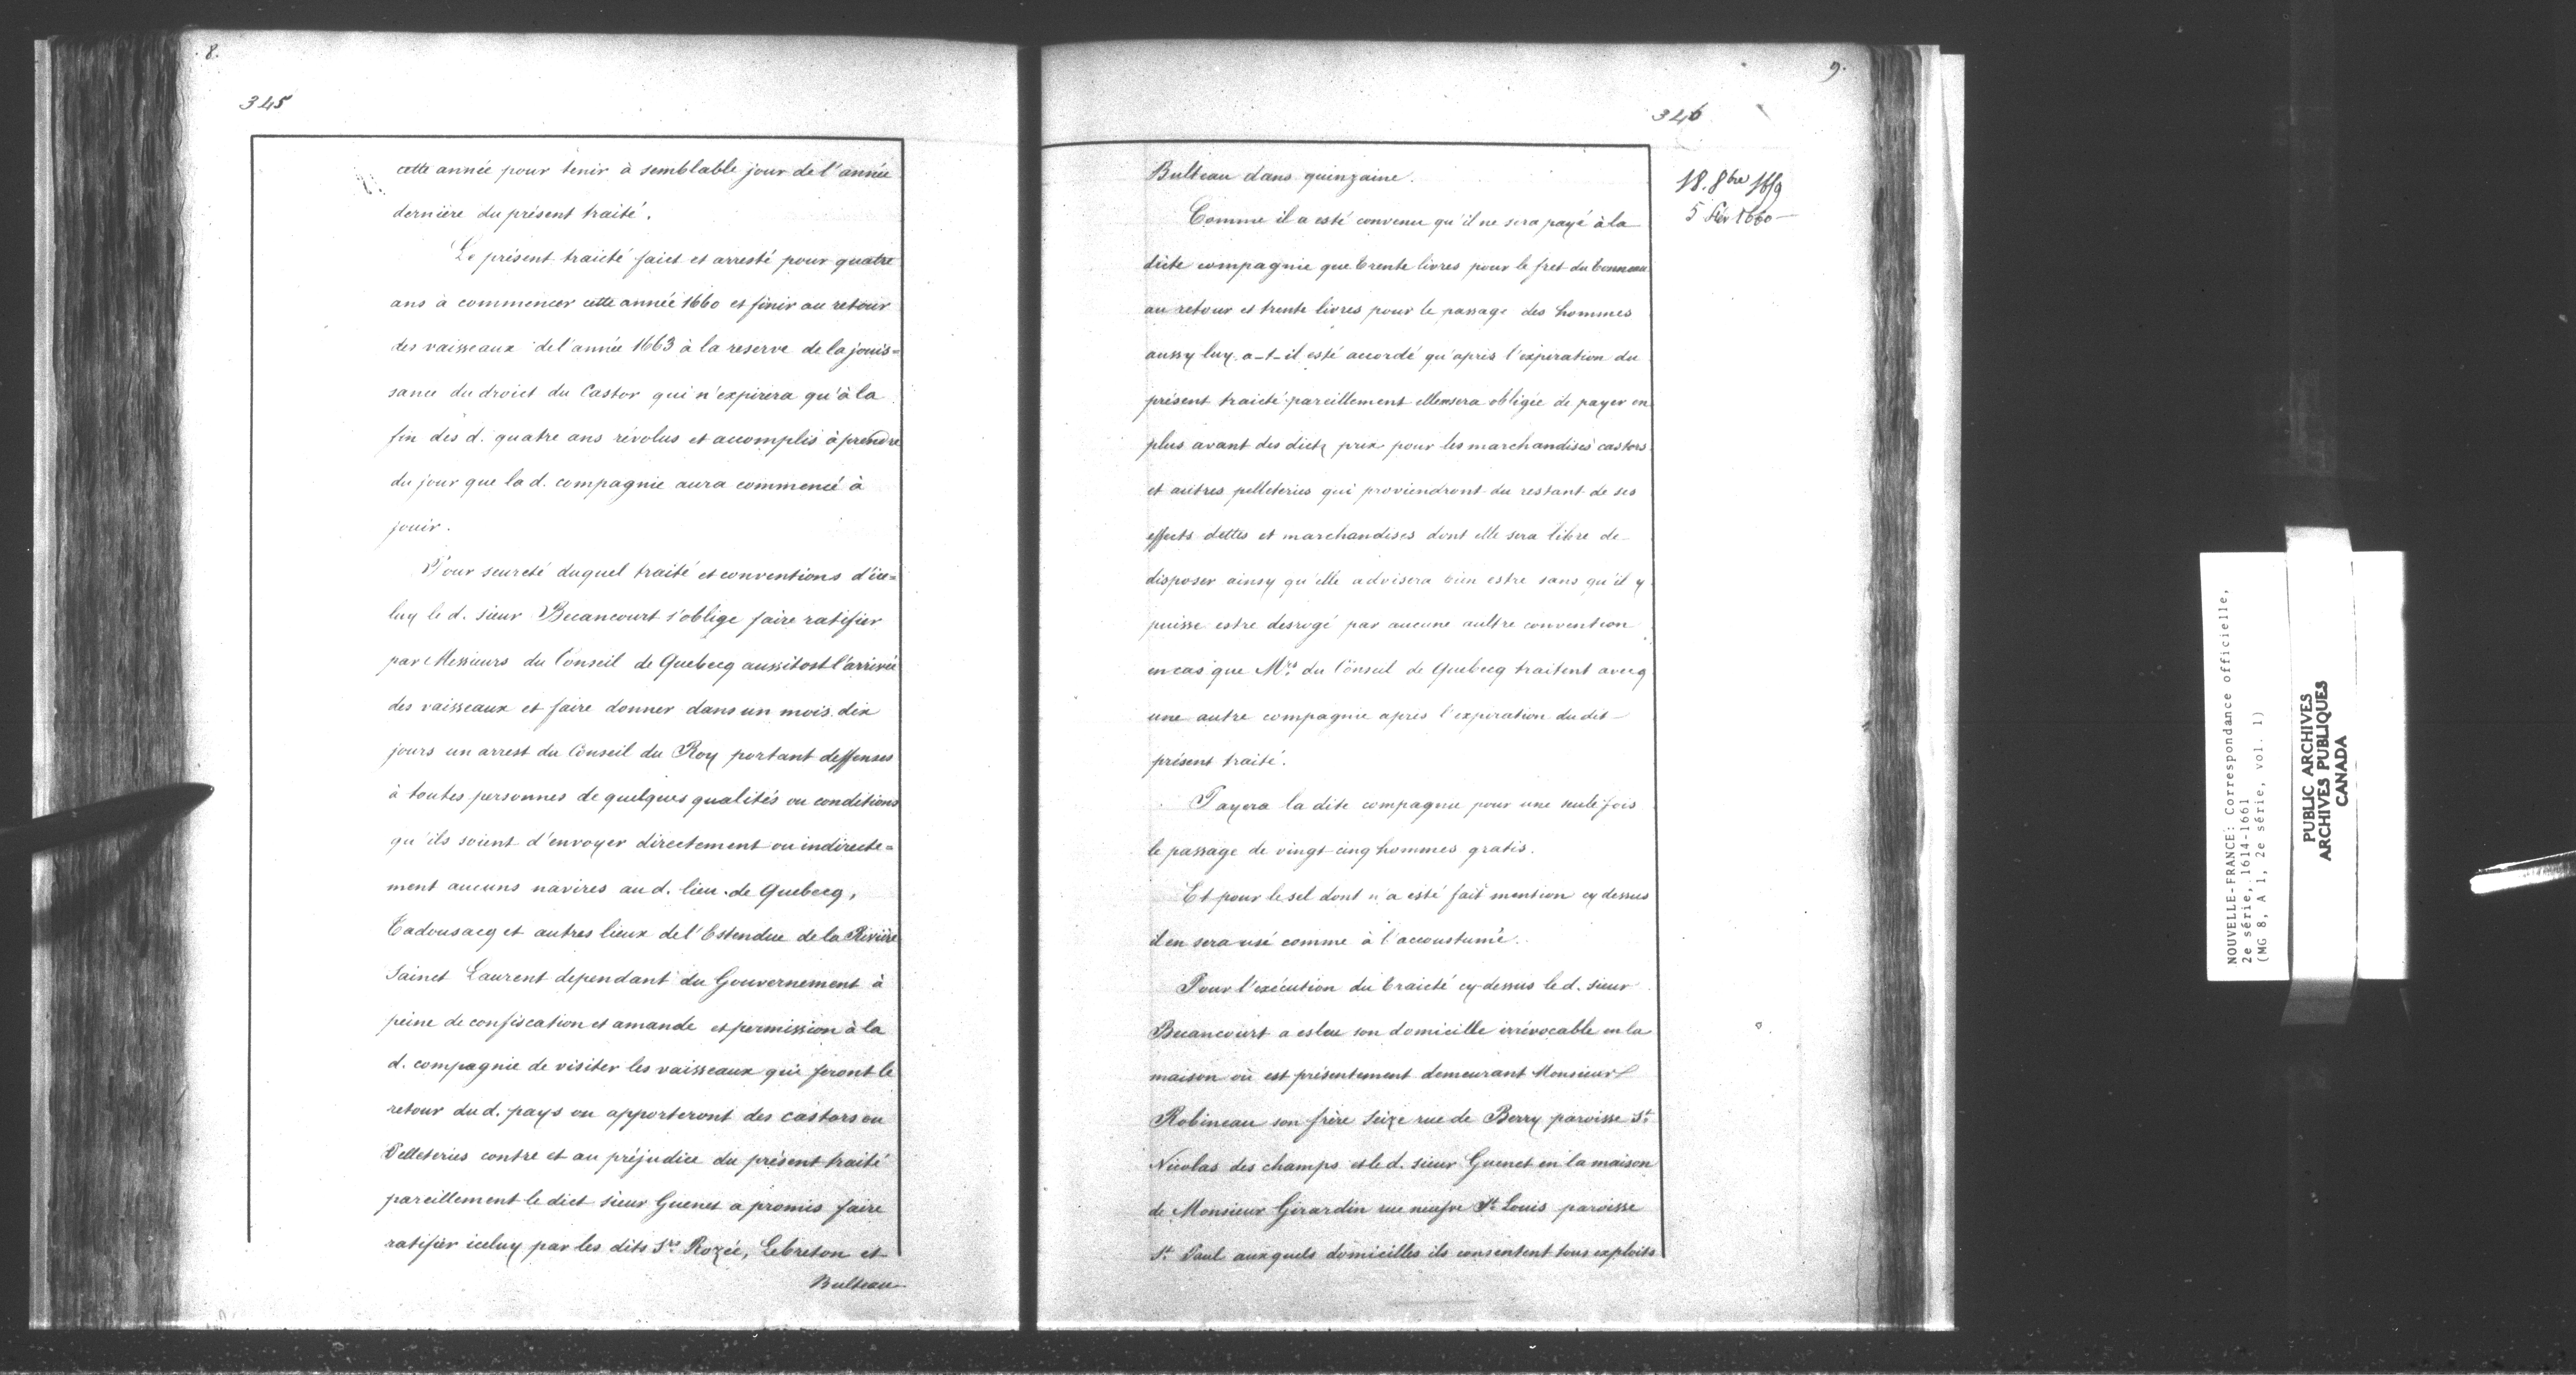 8.
345
cette année pour tenir à semblable jour de l'année
dernière du présent traité.
Le présent traicté faict et arresté pour quatre
ans à commencer cette année 1660 et finir au retour
des vaisseaux de l'année 1663 à la reserve de la jouis=
sance du droict du Castor qui n'expirera qu'à la
fin des d. quatre ans révolus et accomplis à prendre
du jour que la d. compagnie aura commencé à
jouir.
Pour seureté duquel traité et conventions d'ice=
luy le d. sieur Becancourt s'oblige faire ratifier
par Messieurs du Conseil de Quebecq aussitost l'arrivée
des vaisseaux et faire donner dans un mois dix
jours un arrest du Conseil du Roy portant deffenses
à toutes personnes de quelques qualités ou conditions
qu'ils soient d'envoyer directement ou indirecte=
ment aucuns navires au d. lieu de Quebecq,
Tadousacq et autres lieux de l'Estendue de la Rivière
Sainct Laurent dependant du Gouvernement à
peine de confiscation et amande et permission à la
d. compagnie de visiter les vaisseaux qui feront le
retour du d. pays ou apporteront des castors ou
Pelleteries contre et au préjudice du présent traité
pareillement le dict sieur Guenet a promis faire
ratifier iceluy par les dits Srs Rozée, Lebreton et
Bulteau
9.
346
18. 8bre 1659
5 Fév 1660
Bulteau dans quinzaine.
Comme il a esté convenu qu'il ne sera payé à la
dite compagnie que trente livres pour le fret du tonneau
au retour et trente livres pour le passage des hommes
aussy luy a-t-il esté accordé qu'après l'expiration du
présent traicté pareillement elle sera obligée de payer en
plus avant des dicts prix pour les marchandises castors
et autres pelleteries qui proviendront du restant de ses
effects dettes et marchandises dont elle sera libre de
disposer ainsy qu'elle advisera bien estre sans qu'il y
puisse estre desrogé par aucune aultre convention
en cas que Mrs du Conseil de Quebecq traitent avecq
une autre compagnie après l'expiration du dit
présent traité.
Payera la dite compagnie pour une seule fois
le passage de vingt cinq hommes gratis.
Et pour le sel dont n'a esté fait mention cy dessus
il en sera usé comme à l'accoustumé.
Pour l'exécution du traicté cy-dessus le d. sieur
Becancourt a esleu son domicille irrévocable en la
maison où est présentement demeurant Monsieur
Robineau son frère Seize rue de Berry paroisse St
Nicolas des champs et le d. sieur Guenet en la maison
de Monsieur Girardin rue neufve St Louis paroisse
St Paul auxquels domicilles ils consentent tous exploits
NOUVELLE-FRANCE: Correspondance officielle,
2e série, 1614-1661
(MG 8, A 1, 2e série, vol. 1)
PUBLIC ARCHIVES
ARCHIVES PUBLIQUES
CANADA